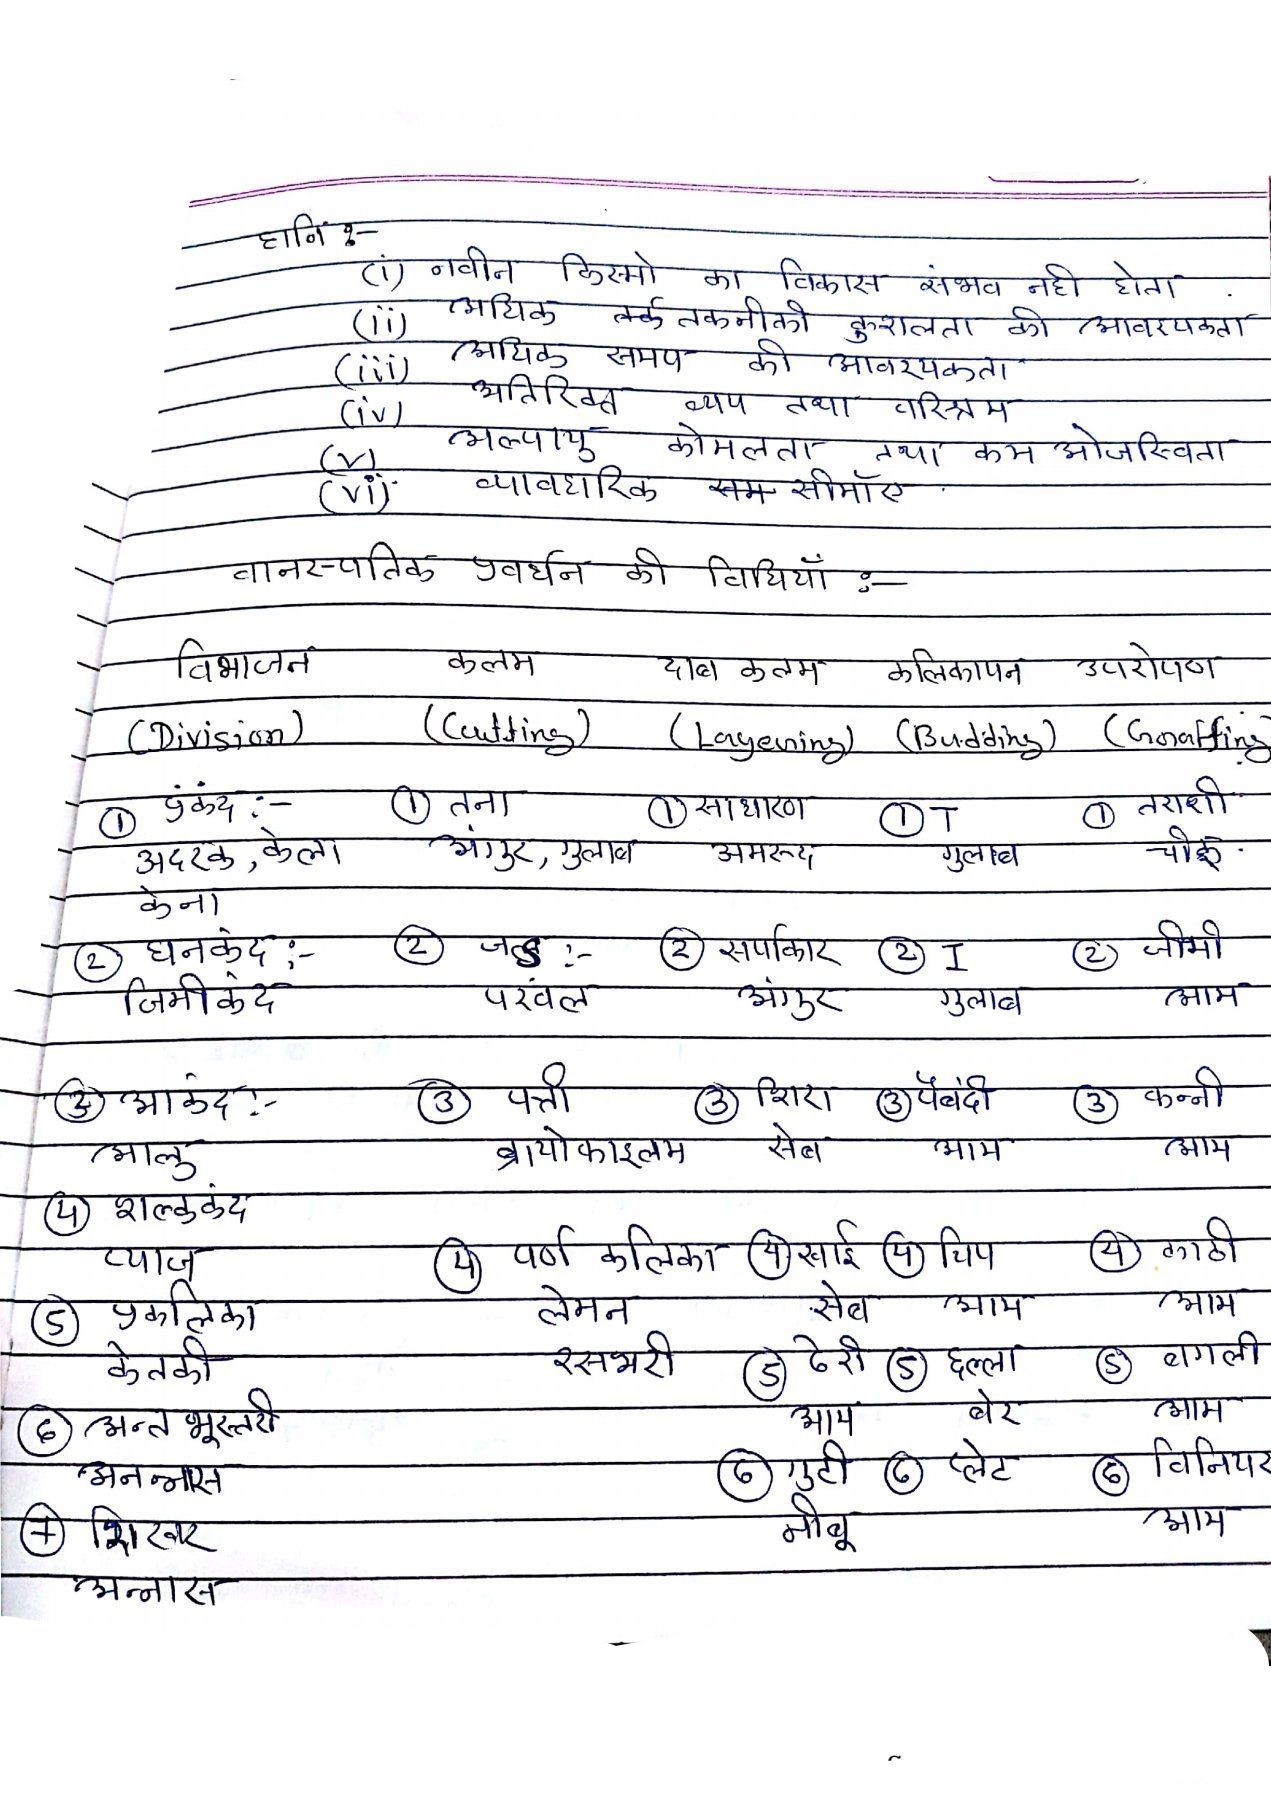 हानि :-
(i) नवीन किस्मो का विकास संभव नही होता
(ii) अधिक तकनीकी कुशलता की आवश्यकता
(iii) अधिक समय की आवश्यकता
(iv) अतिरिक्त व्यय तथा परिश्रम
(v) अल्पायु कोमलता तथा कम ओजस्विता
(vi) व्यावहारिक सीमाँए
वानस्पतिक प्रवर्धन की विधियाँ :-
विभाजन कलम दाब कलम कलिकापन उपरोपण
(Division) (Cutting) (Layering) (Budding) (Graffing)
① प्रंकंद :- ① तना ① साधारण ① T ① तराशी
अदरक, केला अंगुर, गुलाब अमरूद गुलाब
केना
② घनकंद :- ② जड :- ② सर्पाकार ② I ② जीमी
जिमीकंद परंवल अंगुर गुलाब आम
③ आकंद :- ③ पत्ती ③ शिरा ③ पैबंदी ③ कन्नी
आलु ब्रायोकाइलम सेब आम आम
④ शल्ककंद
प्याज ④ पर्ण कलिका ④ खाई ④ चिप ④ काठी
⑤ प्रकलिका लेमन सेब आम आम
केतकी रसभरी ⑤ ढेरी ⑤ छल्ला ⑤ बगली
⑥ अन्त भूस्तरी आम बेर आम
अनन्नास ⑥ गुटी ⑥ प्लेट ⑥ विनियर
⑦ शिखर नीबू आम
अन्नास